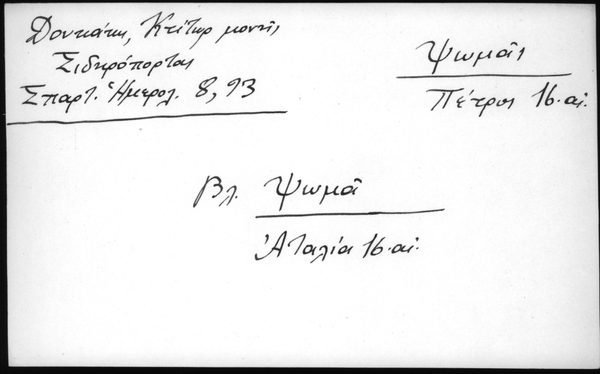 Δουκάτα, Κτίτωρ μονῆς
Σιδηρόπορτας
Σπαρτ. Ἡμερολ. 8, 93
Ψωμᾶς
Πέτρος 16. αἰ.
Βλ. Ψωμᾶ
Ἀταλία 16. αἰ.